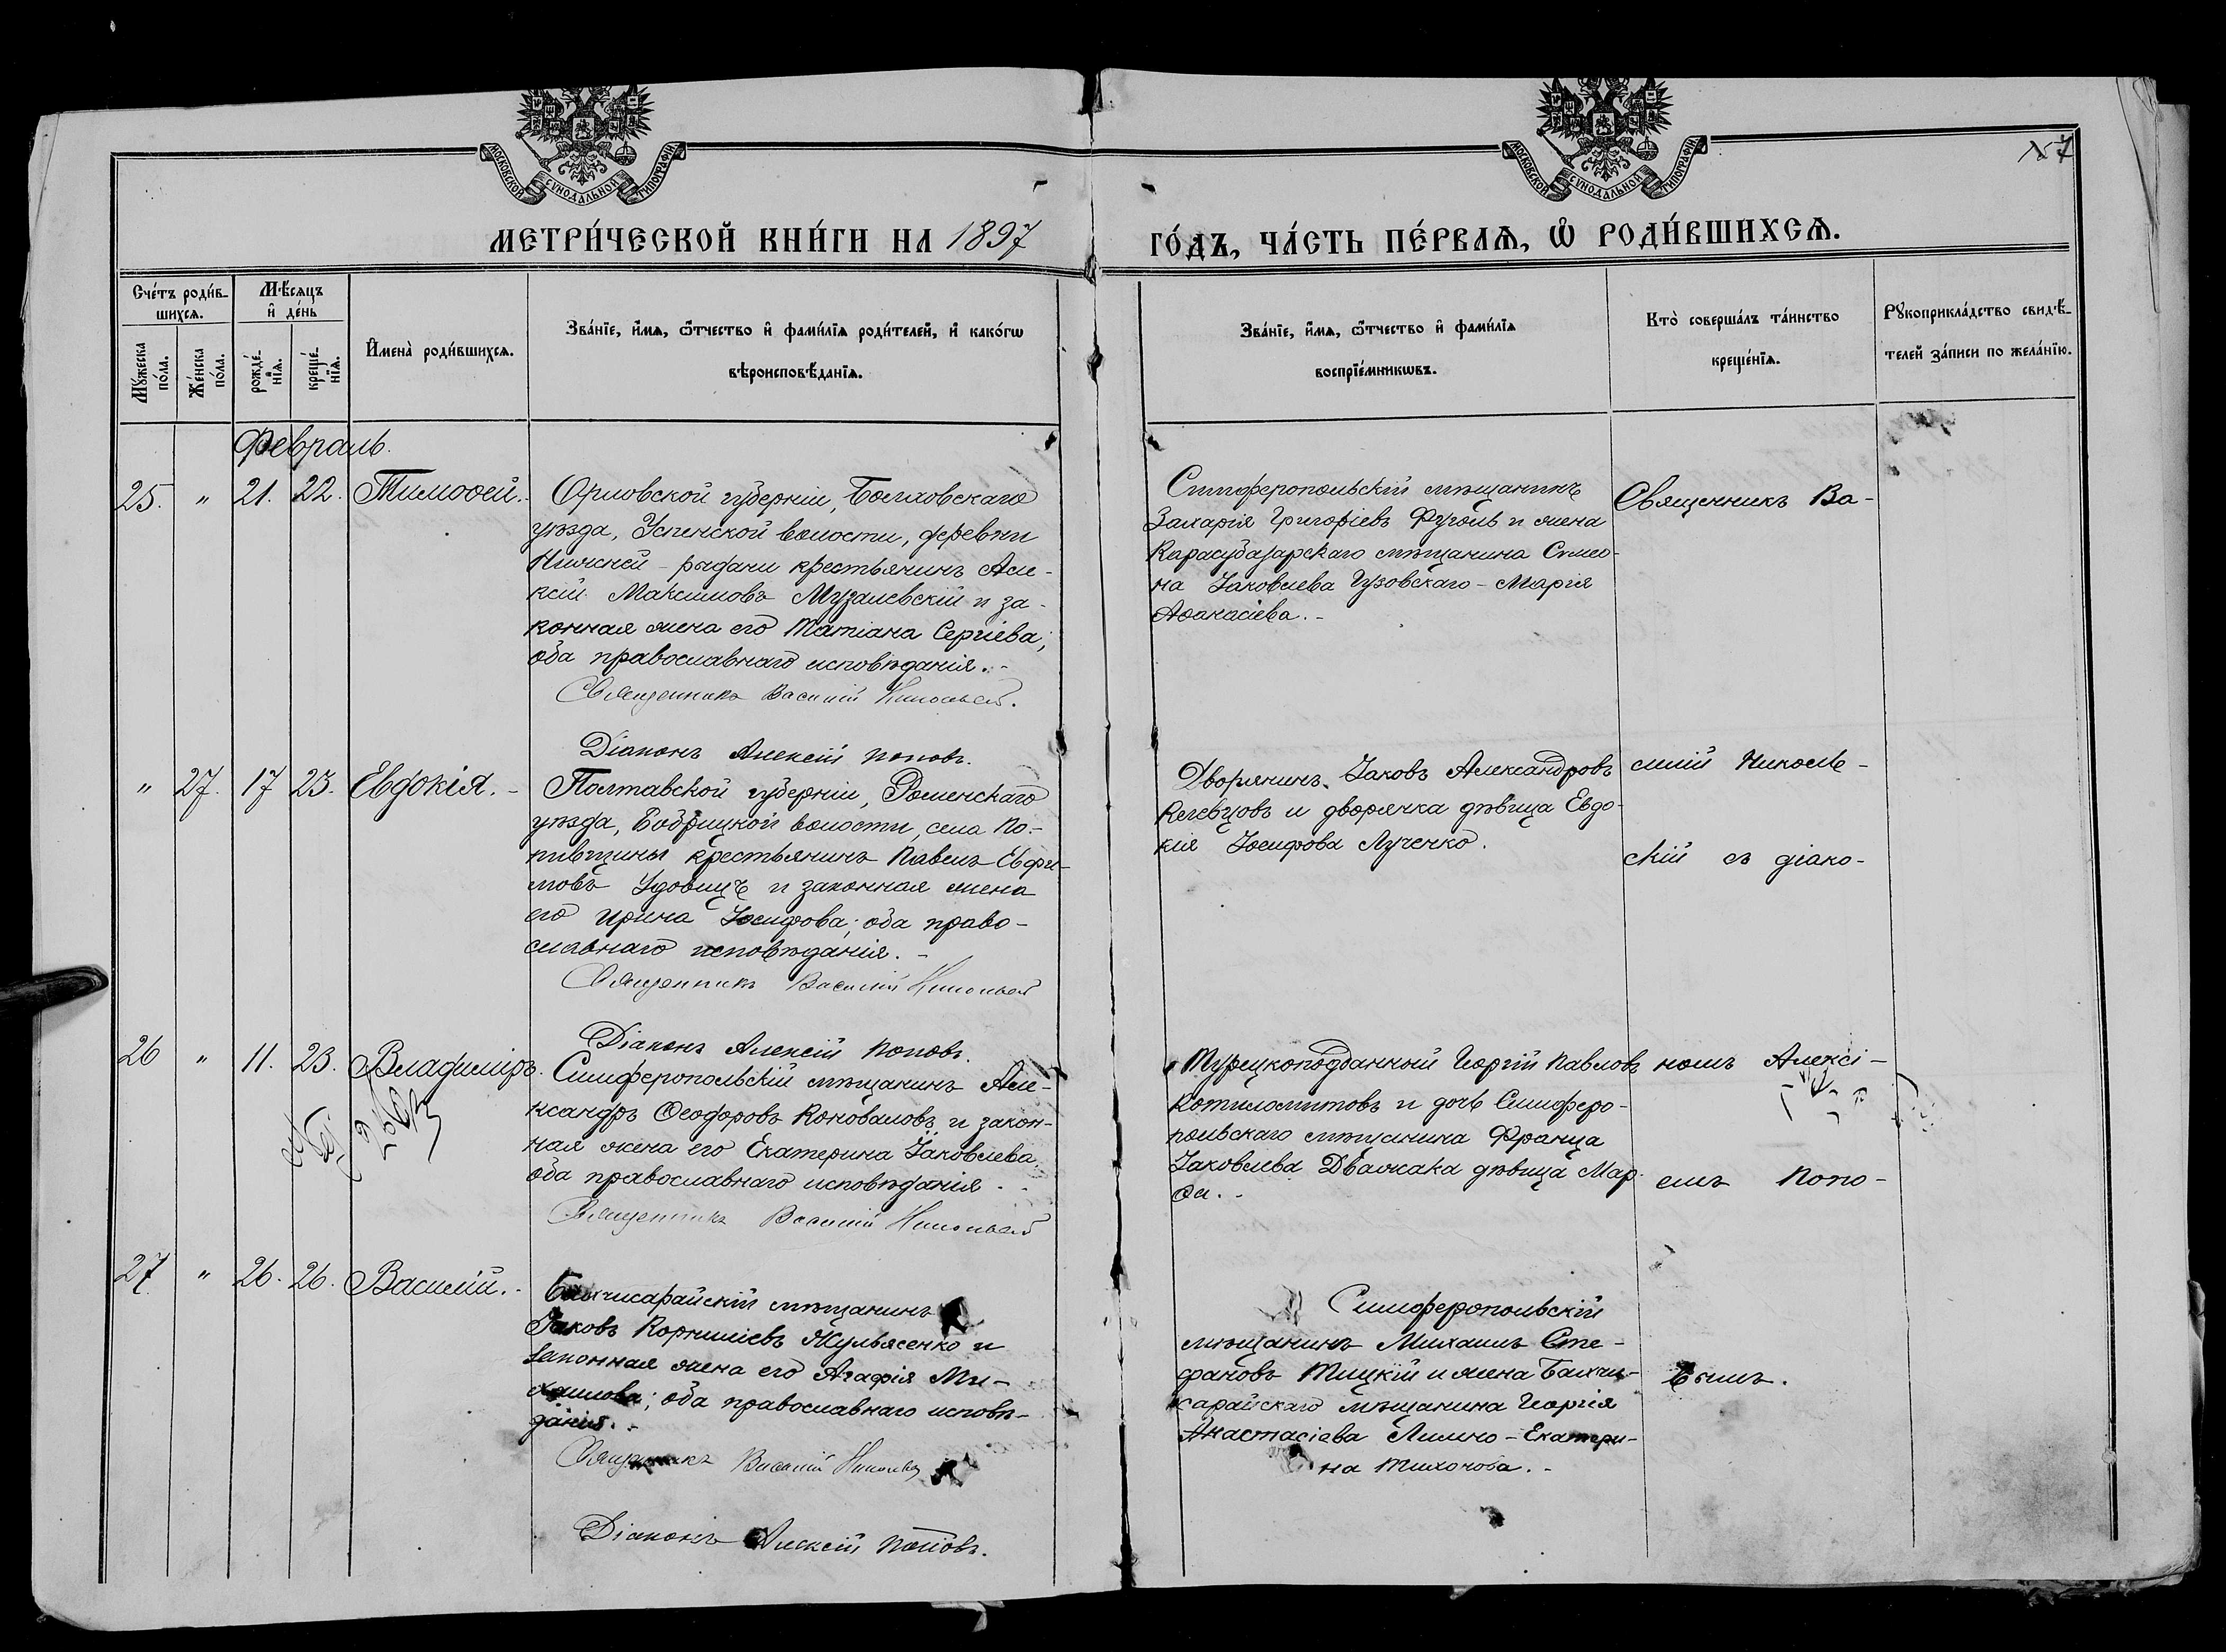 МОСКОВСКОЙ СѴНОДАЛЬНОЙ ТИПОГРАФІИ
МОСКОВСКОЙ СѴНОДАЛЬНОЙ ТИПОГРАФІИ
7
МЕТРИ́ЧЕСКОЙ КНИ́ГИ НА 1897
ГО́ДЪ, ЧА́СТЬ ПЕ́РВАѦ, Ѡ РОДИ́ВШИХСѦ.
Сче́тъ роди́в-
шихсѧ.
Мꙋжеска
по́ла.
Же́нска
по́ла.
Мѣ́сѧцъ
и҆ де́нь
рожде́-
нїѧ.
креще́-
нїѧ.
И҆мена̀ роди́вшихсѧ.
Зва́нїе, и҆́мѧ, ѻ҆́тчество и҆ фами́лїѧ роди́телей, и҆ како́гѡ
вѣроисповѣ́данїѧ.
Зва́нїе, и҆́мѧ, ѻ҆́тчество и҆ фами́лїѧ
воспрїе́мникѡвъ.
Кто̀ соверша́лъ та́инство
креще́нїѧ.
Рꙋкоприкла́дство свидѣ́-
телей за́писи по жела́нїю.
Февраль.
25. " 21. 22. Тимоѳей.
Орловской губерніи, Болховскаго
уѣзда, Успенской волости, деревни
Нижней - рыдани крестьянинъ Але-
ксій Максимовъ Музалевскій и за-
конная жена его Татіана Сергіева;
оба православнаго исповѣданія.-
Священникъ Василій Никольскій.
Діаконъ Алексій Поповъ.
Симферопольскій мѣщанинъ
Захарія Григоріевъ Фуголь и жена
Карасубазарскаго мѣщанина Симео-
на Іаковлева Гузовскаго - Марія
Аѳанасіева.-
Священникъ Ва-
" 27. 17 23. Евдокія.-
Полтавской губерніи, Роменскаго
уѣзда, Бобрицкой волости, села По-
пивщины крестьянинъ Павелъ Евфи-
мовъ Удовицъ и законная жена
его Ирина Іосифова; оба право-
славнаго исповѣданія.-
Священникъ Василій Никольскій
Діаконъ Алексій Поповъ.
Дворянинъ Іаковъ Александровъ
Келевцовъ и дворянка дѣвица Евдо-
кія Іосифова Лученко.
силій Николь-
скій съ діако-
26 " 11. 23. Владиміръ.
Симферопольскій мѣщанинъ Але-
ксандръ Ѳеодоровъ Коноваловъ и закон-
ная жена его Екатерина Іаковлева
оба православнаго исповѣданія.-
Священникъ Василій Никольскій
Турецкоподданный Георгій Павловъ
Котиломитовъ и дочь Симферо-
польскаго мѣщанина Франца
Іаковлева Дважака дѣвица Мар-
ѳа.-
номъ Алексі-
емъ Попо-
27 " 26. 26. Василій.-
Бахчисарайскій мѣщанинъ
Іаковъ Корниліевъ Жульясенко и
законная жена его Агафія Ми-
хаилова; оба православнаго исповѣ-
данія.-
Священникъ Василій Никольскій
Діаконъ Алексій Поповъ.
Симферопольскій
мѣщанинъ Михаилъ Сте-
фановъ Тицкій и жена Бахчи-
сарайскаго мѣщанина Георгія
Анастасіева Лилино - Екатери-
на Тихонова.-
вымъ.